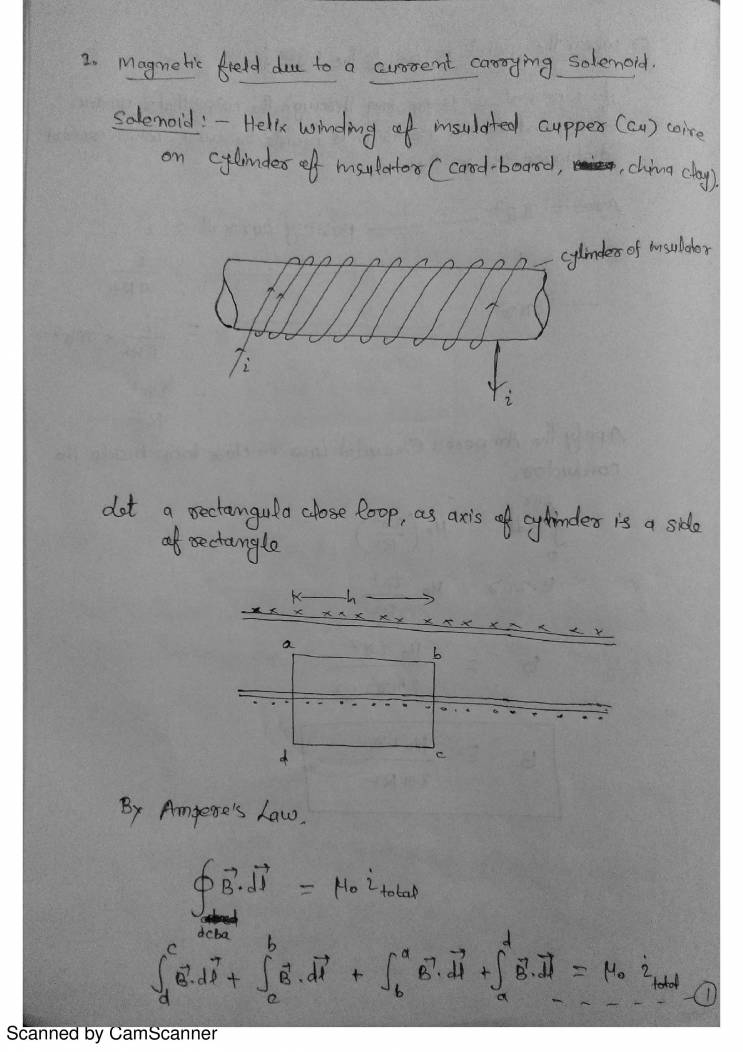 2. Magnetic field due to a current carrying solenoid.
Solenoid: - Helix winding of insulated cupper (Cu) wire
on cylinder of insulator (card-board, , china clay).
cylinder of insulator
i
i
Let a rectangula close loop, as axis of cylinder is a side
of rectangle
h
x x x x x x x x x x x x x x x x
a b
d c
By Ampere's Law.
∮ B⃗.dl⃗ = μ₀ i total
dcba
∫_d^c B⃗.dl⃗ + ∫_c^b B⃗.dl⃗ + ∫_b^a B⃗.dl⃗ + ∫_a^d B⃗.dl⃗ = μ₀ i total - - - - - ①
Scanned by CamScanner